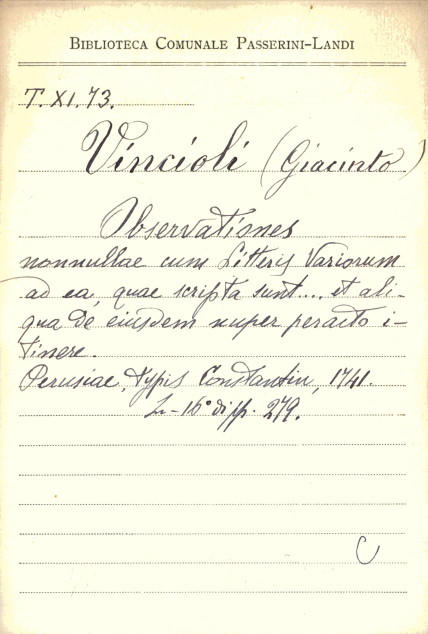 BIBLIOTECA COMUNALE PASSERINI-LANDI
T. XI. 73.
Vincioli (Giacinto)
Observationes
nonnullae cum Litteris Variorum
ad ea, quae scripta sunt.... et ali-
qua de eiusdem nuper peracto i-
tinere.
Perusiae, typis Constantin, 1741.
In-16° di pp. 279.
C